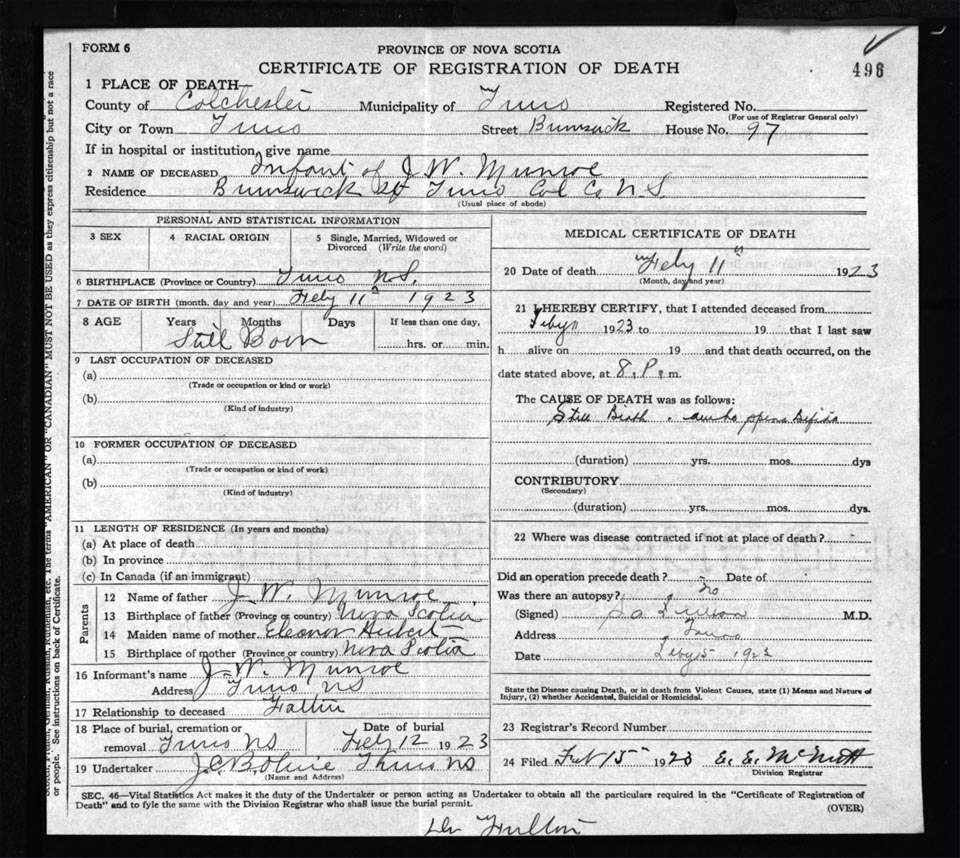 FORM 6
PROVINCE OF NOVA SCOTIA
CERTIFICATE OF REGISTRATION OF DEATH
496
1 PLACE OF DEATH—
County of Colchester Municipality of Truro Registered No.
(For use of Registrar General only)
City or Town Truro Street Brunswick House No. 97
If in hospital or institution, give name
2 NAME OF DECEASED Infant of J. W. Munroe
Residence Brunswick St Truro Col Co N.S.
(Usual place of abode)
PERSONAL AND STATISTICAL INFORMATION
3 SEX
4 RACIAL ORIGIN
5 Single, Married, Widowed or Divorced (Write the word)
6 BIRTHPLACE (Province or Country) Truro N.S.
7 DATE OF BIRTH (month, day and year) Feby 11th 1923
8 AGE Years Months Days If less than one day,
Still Born hrs. or min.
9 LAST OCCUPATION OF DECEASED
(a)
(Trade or occupation or kind or work)
(b)
(Kind of industry)
10 FORMER OCCUPATION OF DECEASED
(a)
(Trade or occupation or kind of work)
(b)
(Kind of industry)
11 LENGTH OF RESIDENCE (In years and months)
(a) At place of death
(b) In province
(c) In Canada (if an immigrant)
Parents
12 Name of father J. W. Munroe
13 Birthplace of father (Province or country) Nova Scotia
14 Maiden name of mother Eleanor
15 Birthplace of mother (Province or country) Nova Scotia
16 Informant's name J. W. Munroe
Address Truro NS
17 Relationship to deceased Father
18 Place of burial, cremation or removal Truro NS
Date of burial Feby 12 1923
19 Undertaker Truro NS
(Name and Address)
MEDICAL CERTIFICATE OF DEATH
20 Date of death Feby 11th 1923
(Month, day and year)
21 I HEREBY CERTIFY, that I attended deceased from
Feby 11 1923 to 19 that I last saw
h alive on 19 and that death occurred, on the
date stated above, at 8. P. m.
The CAUSE OF DEATH was as follows:
Still Birth. Spina Bifida
(duration) yrs. mos. dys
CONTRIBUTORY
(Secondary)
(duration) yrs. mos. dys.
22 Where was disease contracted if not at place of death?
Did an operation precede death? Date of
Was there an autopsy? no
(Signed) Fulton M.D.
Address Truro
Date Feby 15 1923
State the Disease causing Death, or in death from Violent Causes, state (1) Means and Nature of
Injury, (2) whether Accidental, Suicidal or Homicidal.
23 Registrar's Record Number
24 Filed Feb 15 1923 E. E. McNutt
Division Registrar
SEC. 46—Vital Statistics Act makes it the duty of the Undertaker or person acting as Undertaker to obtain all the particulars required in the "Certificate of Registration of
Death" and to fyle the same with the Division Registrar who shall issue the burial permit.
(OVER)
Dr Fulton
German, Russian, Ruthenian, etc. The terms "AMERICAN" or "CANADIAN" MUST NOT BE USED as they express citizenship but not a race
or people. See instructions on back of Certificate.